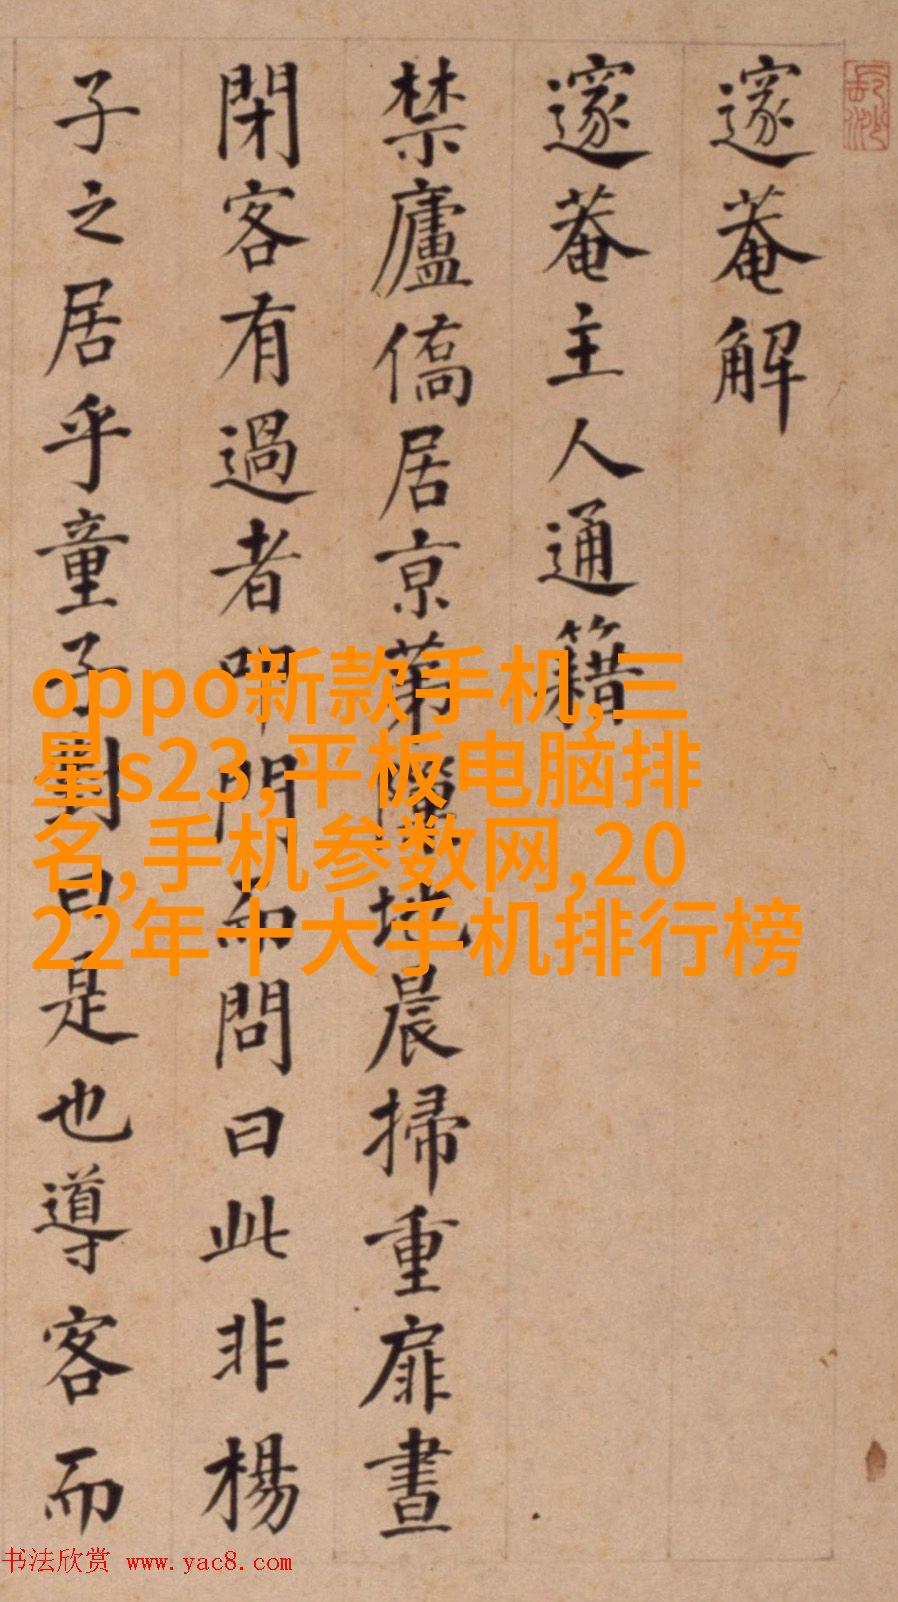 邃菴解
邃菴主人通籍
禁廬僑居京第隱地晨掃重扉晝
閉客有過者叩門而問曰此非楊
子之居乎童子對曰是也導客而
oppo新款手机,三
星s23,平板电脑排
名,手机参数网,20
22年十大手机排行榜
书法欣赏 www.yac8.com